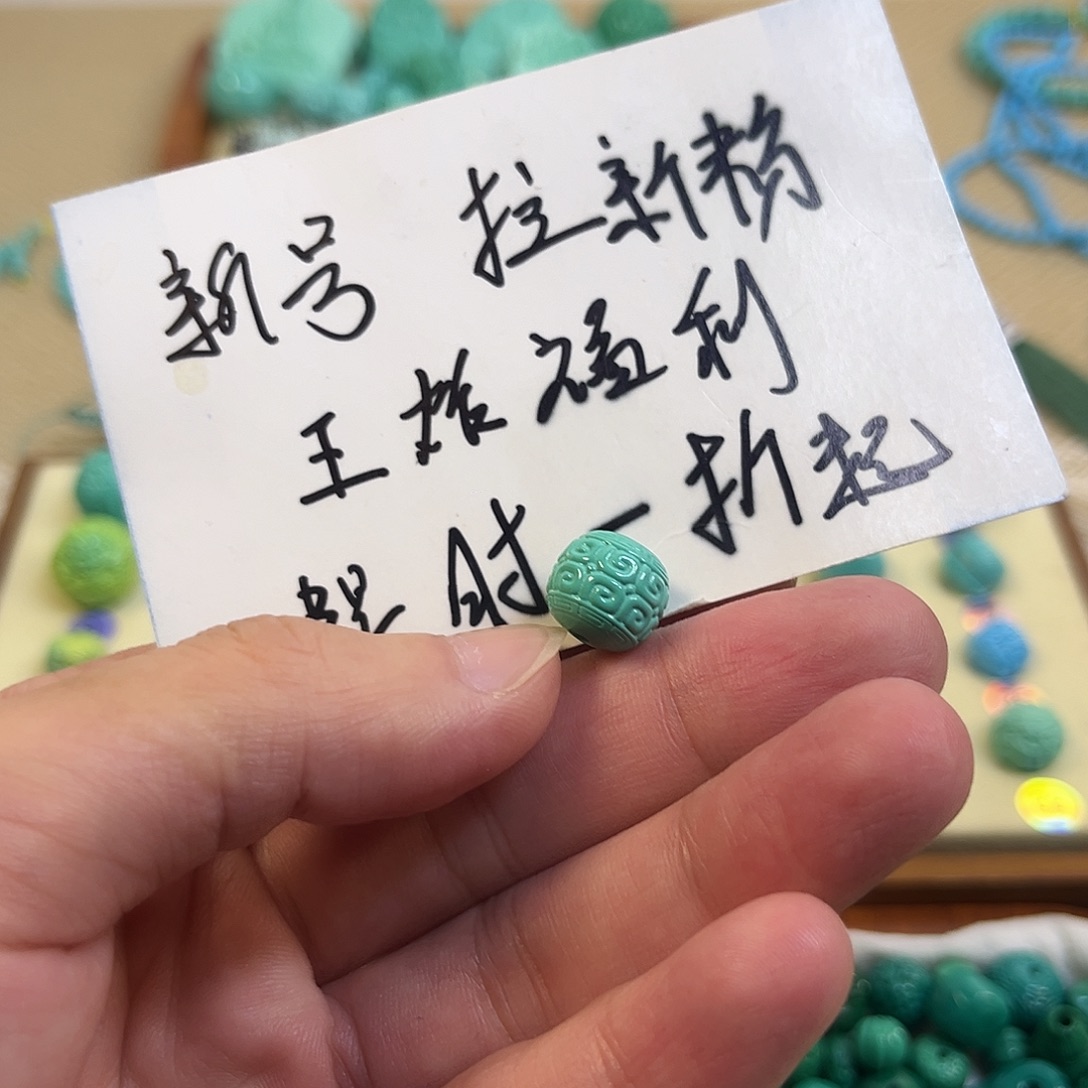 新号 拉新粉
王炸福利
超时一折起